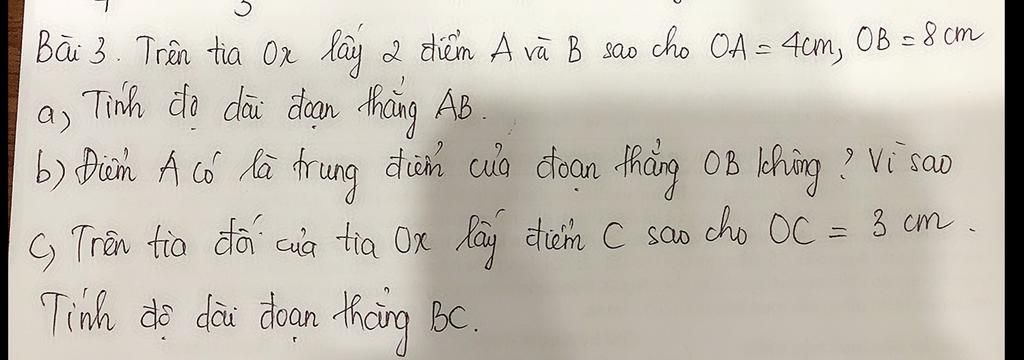 Bài 3. Trên tia Ox lấy 2 điểm A và B sao cho OA = 4cm, OB = 8cm
a) Tính độ dài đoạn thẳng AB.
b) Điểm A có là trung điểm của đoạn thẳng OB không? Vì sao
c) Trên tia đối của tia Ox lấy điểm C sao cho OC = 3 cm.
Tính độ dài đoạn thẳng BC.